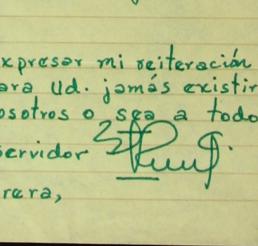 xpresar mi reiteración
ara Ud. jamás existir
osotros o sea a todo
ervidor
rera,